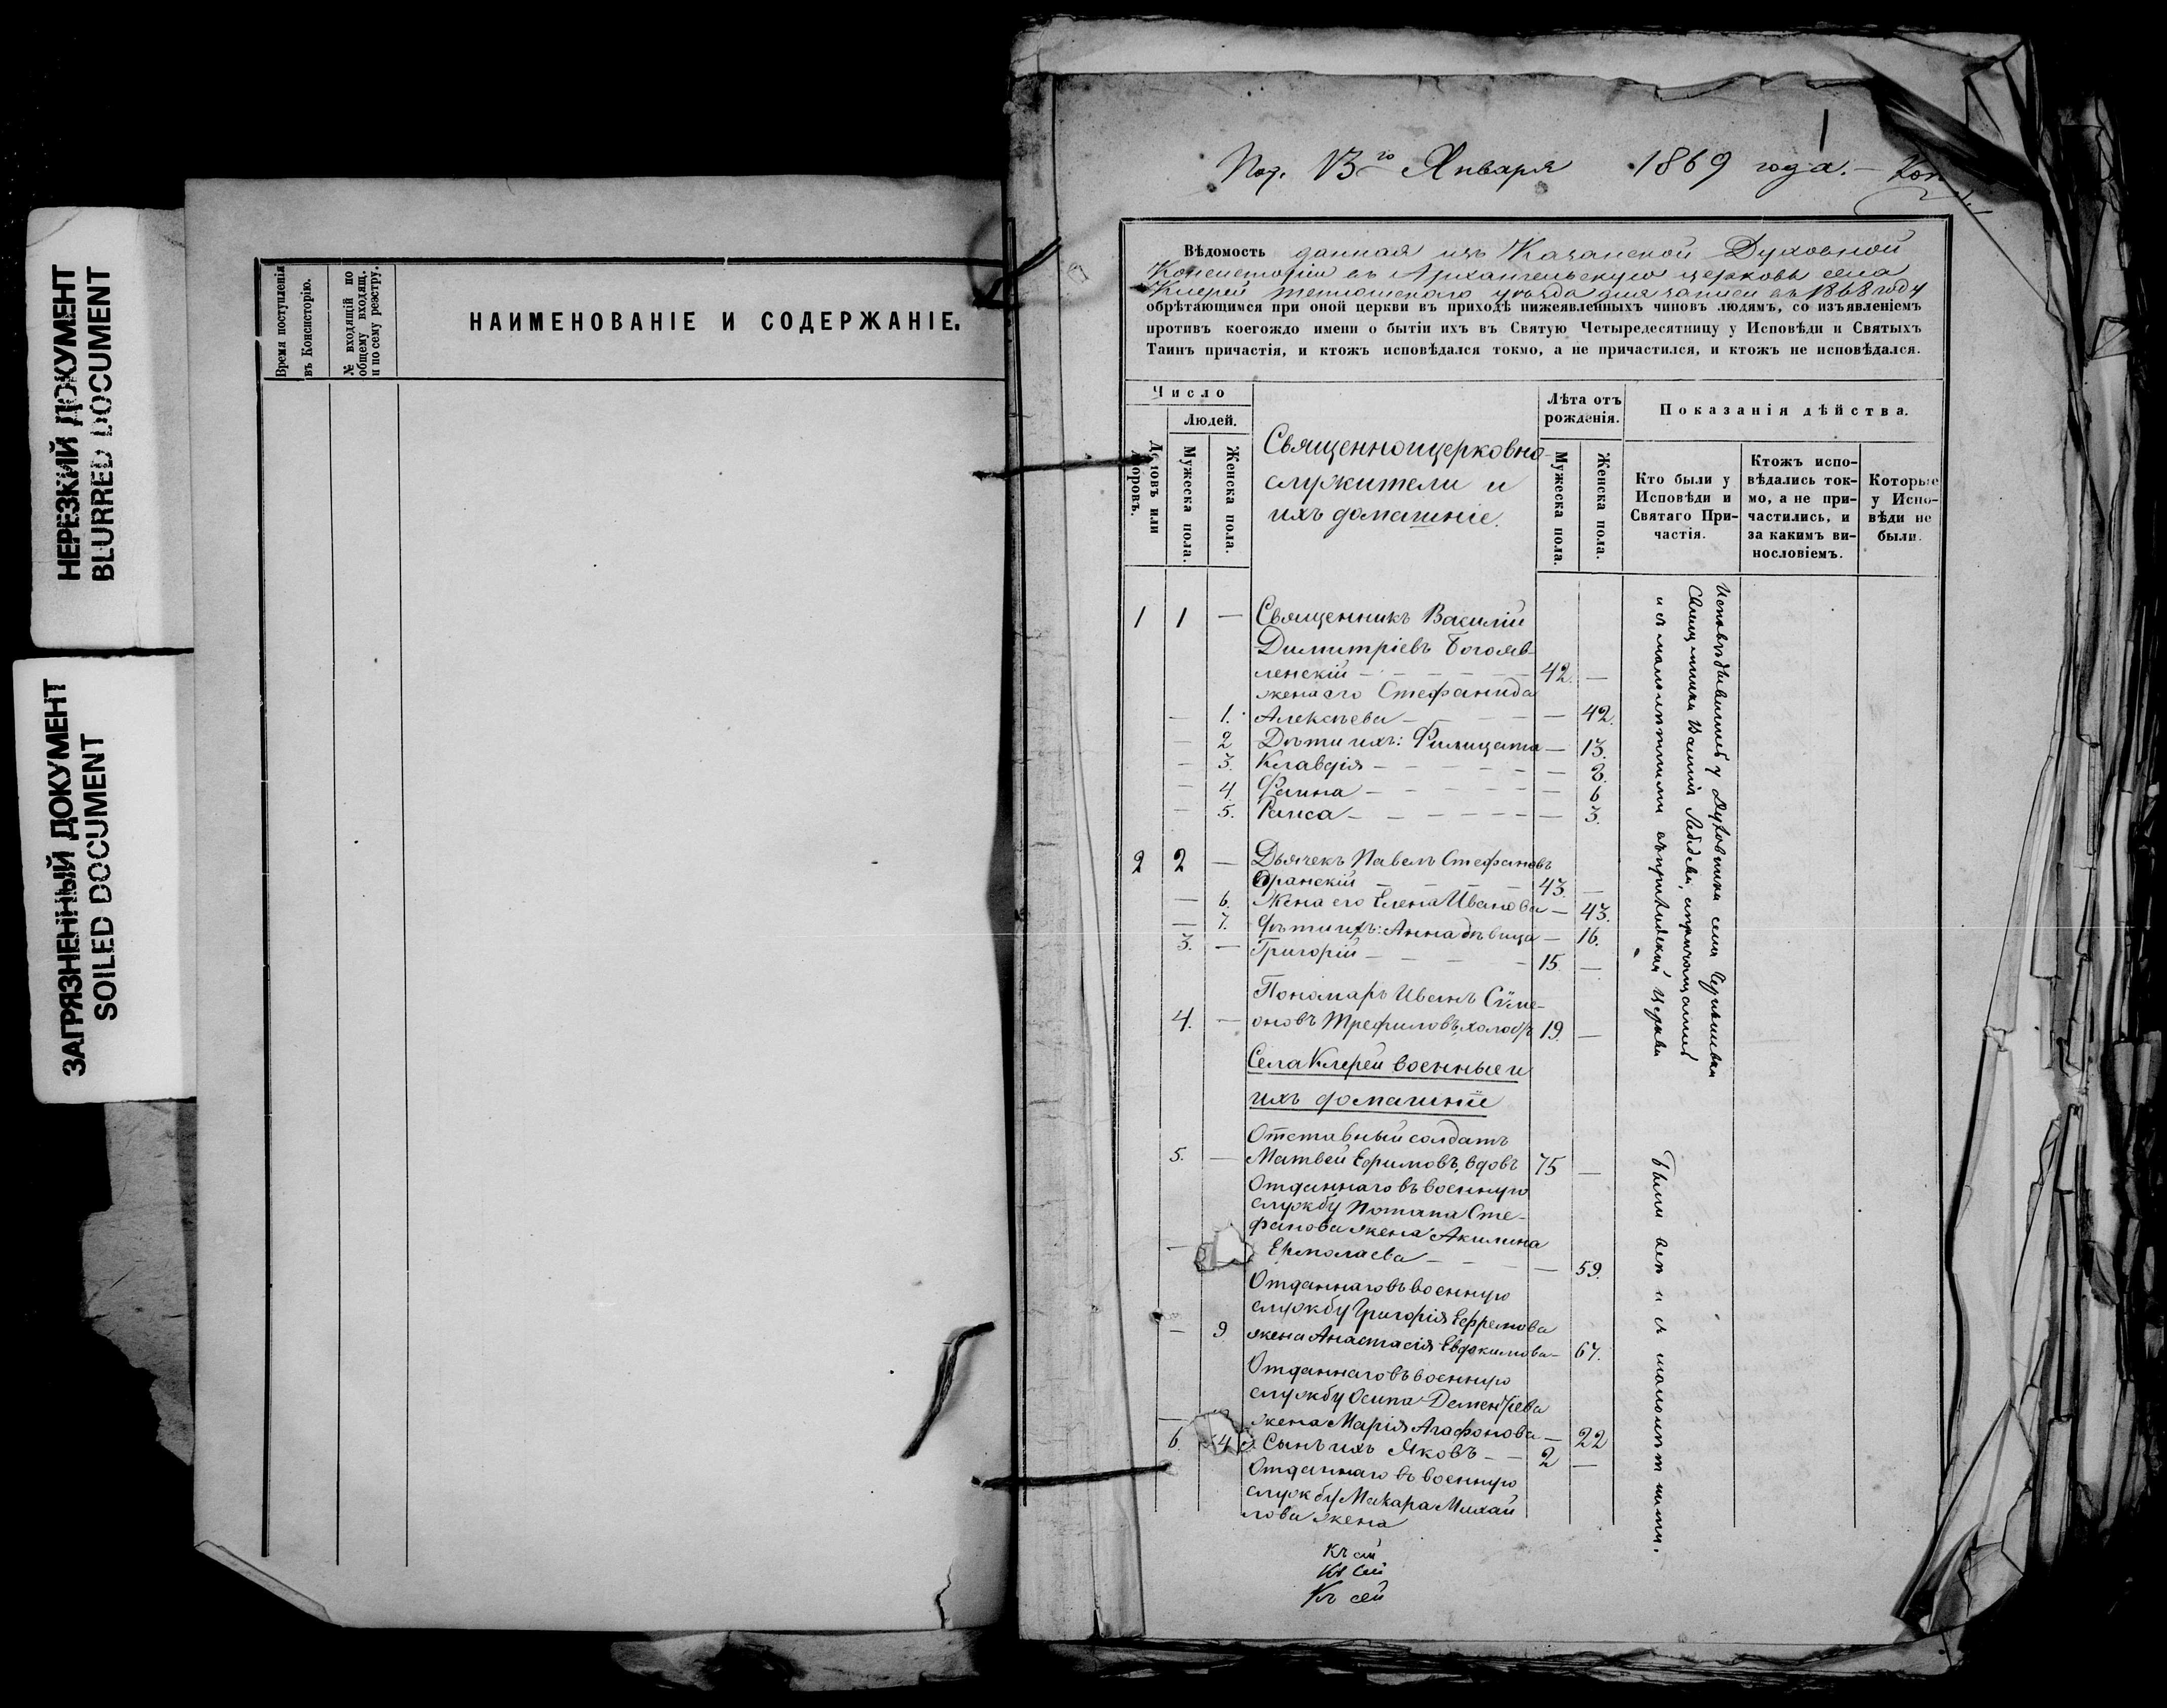 НЕРЕЗКИЙ ДОКУМЕНТ
BLURRED DOCUMENT
ЗАГРЯЗНЕННЫЙ ДОКУМЕНТ
SOILED DOCUMENT
Время поступленія
въ Консисторію.
№ входящій по
общему входящ.
и по сему реэстру.
НАИМЕНОВАНІЕ И СОДЕРЖАНІЕ.
1
Января 1869 года. —
Вѣдомость данная изъ Казанской Духовной
Консисторіи въ Архангельскую церковь села
Клерей уѣзда для записи въ 1868 году
обрѣтающимся при оной церкви въ приходѣ нижеявленныхъ чиновъ людямъ, со изъявленіемъ
противъ коегождо имени о бытіи ихъ въ Святую Четыредесятницу у Исповѣди и Святыхъ
Таинъ причастія, и ктожъ исповѣдался токмо, а не причастился, и ктожъ не исповѣдался.
Число
Людей.
Домовъ или
дворовъ.
Мужеска пола.
Женска пола.
Священноицерковно-
служители и
ихъ домашніе.
Лѣта отъ
рожденія.
Мужеска пола.
Женска пола.
Показанія дѣйства.
Кто были у
Исповѣди и
Святаго При-
частія.
Ктожъ испо-
вѣдались ток-
мо, а не при-
частились, и
за какимъ ви-
нословіемъ.
Которые
у Испо-
вѣди не
были.
1 1 — Священникъ Василій
Димитріевъ Богояв-
ленскій — 42. —
жена его Стефанида
— 1. Алексѣева — — 42.
— 2 Дѣти ихъ: Филицата — 13.
— 3. Клавдія — — 8.
— 4. Фаина — — 6
— 5. Раиса — — 3.
2 2 — Дьячекъ Павелъ Стефановъ
Оранскій — 43. —
— 6. Жена его Елена Иванова — 43.
— 7. Дѣти ихъ: Анна дѣвица — 16.
3. — Григорій — 15. —
Пономарь Иванъ Сѵме-
4. — оновъ Трефиловъ, холостъ 19. —
Села Клерей военные и
ихъ домашніе
Отставный солдатъ
5. — Матвей Ефимовъ, вдовъ 75 —
Отданнаго въ военную
службу Потапа Сте-
фанова жена Акилина
— Ермолаева — — 59.
Отданнаго въ военную
службу Григорія Ефремова
— 9 жена Анастасія Евдокимова — 67.
Отданнаго въ военную
службу Осипа Дементьева
— жена Марія Агафонова — 22
6. Сынъ ихъ Яковъ — 2 —
Отданнаго въ военную
службу Макара Михай
лова жена
Исповѣдывались у Духовника села
Священника Василія Лебедева, а причащались
и съ малолѣтними въ приходской церкви
Были все и съ малолѣтними.
Къ сей
Къ сей
Къ сей